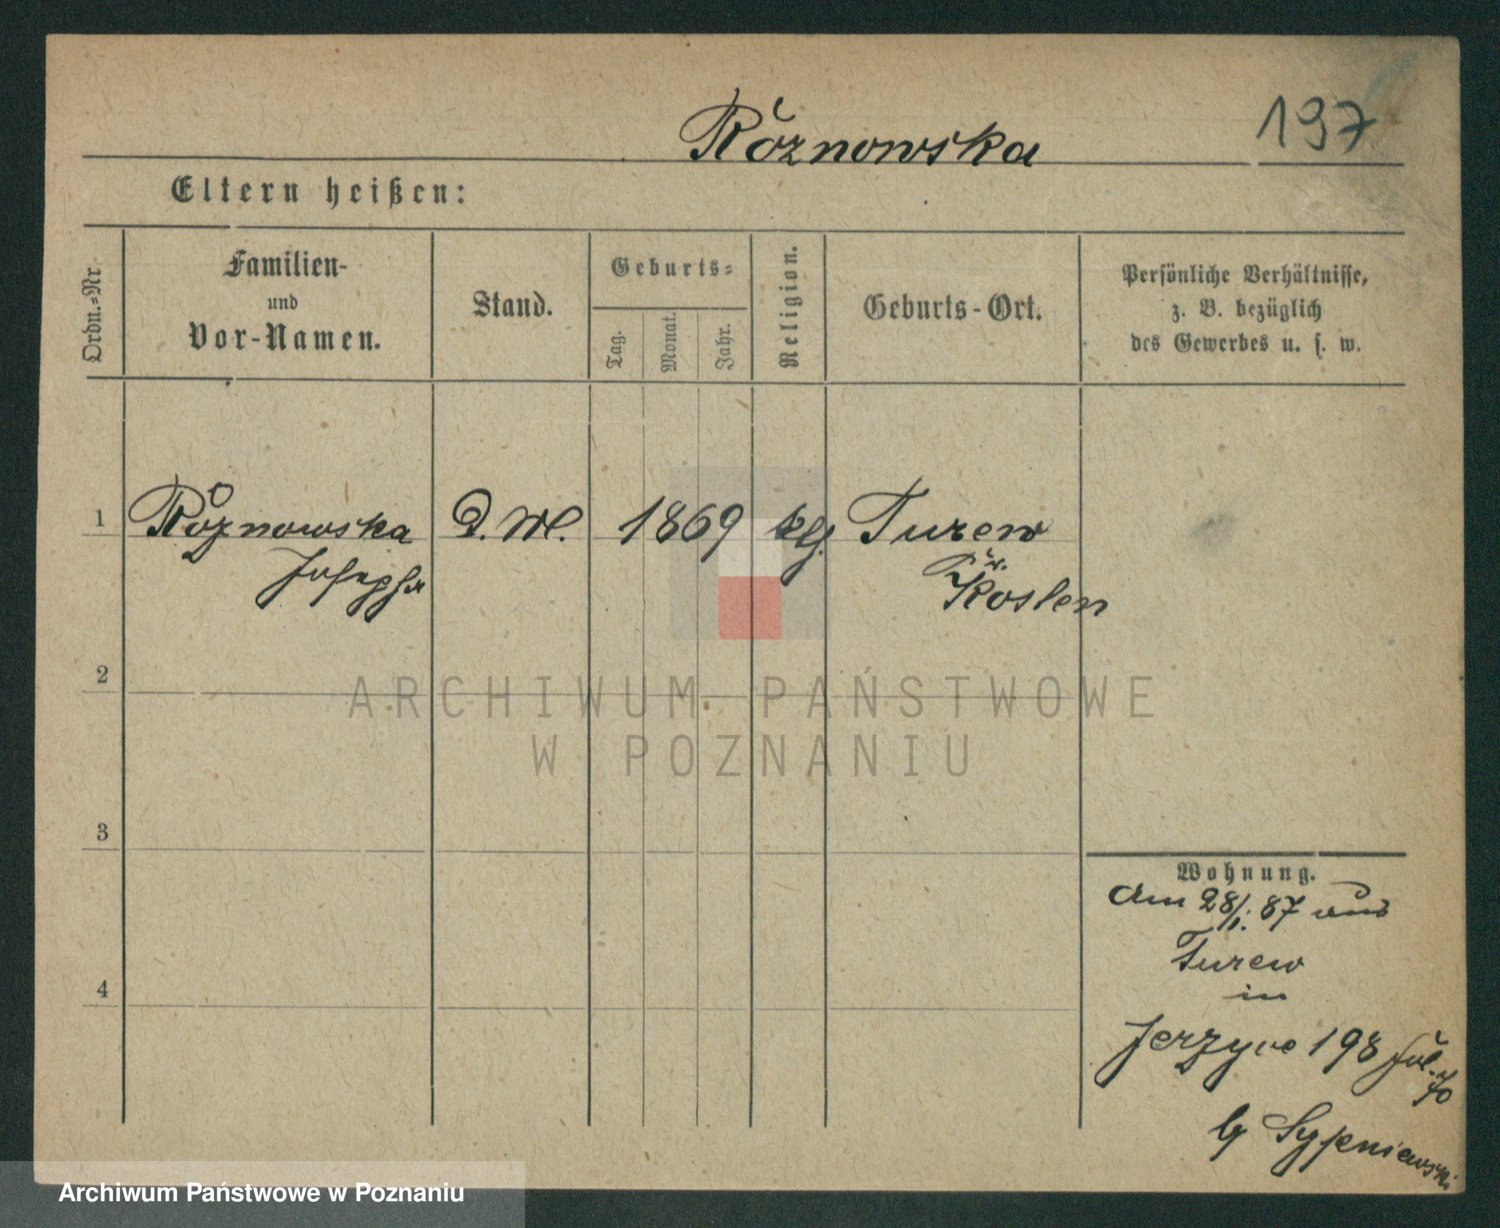 Rǒznowska 197
Eltern heißen:
Ordn.=Nr
Familien-
und
Vor-Namen.
Stand.
Geburts=
Tag.
Monat.
Jahr.
Religion.
Geburts-Ort.
Persönliche Verhältnisse,
z. B. bezüglich
des Gewerbes u. s. w.
1 Roznowska D.M. 1869 Turew
Josepha
Kosten
2
ARCHIWUM PAŃSTWOWE
W POZNANIU
3
4
Wohnung.
Am 28/1. 87 aus
Turew
in
Jerzyce 198
b/ Sypniewski
Archiwum Państwowe w Poznaniu